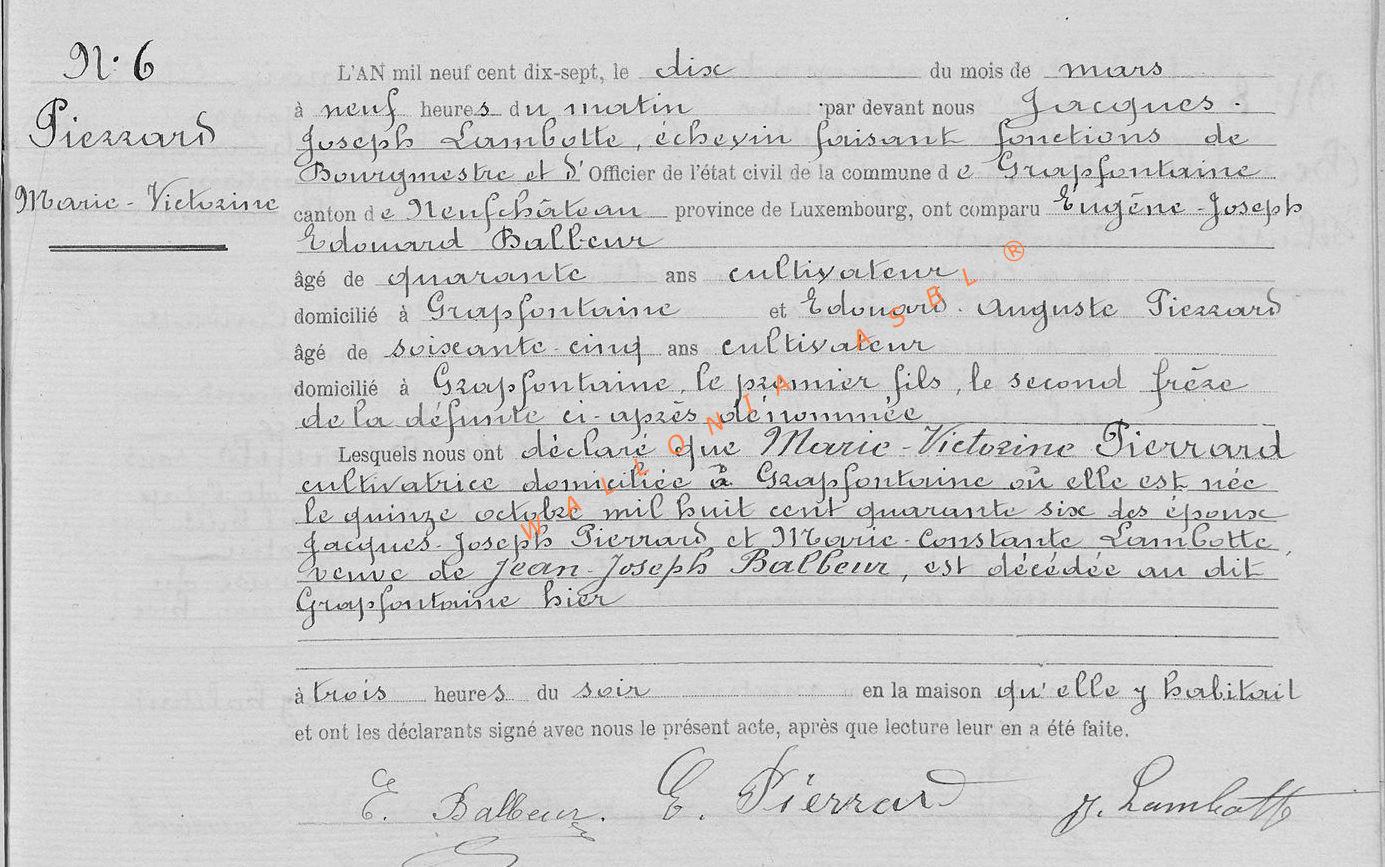 N° 6
Pierrard
Marie-Victorine
L'AN mil neuf cent dix-sept, le dix du mois de mars
à neuf heures du matin par devant nous Jacques-
Joseph Lambotte, échevin faisant fonctions de
Bourgmestre et d'Officier de l'état civil de la commune de Grapfontaine
canton de Neufchâteau province de Luxembourg, ont comparu Eugène-Joseph
Edouard Balbeur
âgé de quarante ans cultivateur
domicilié à Grapfontaine et Edouard-Auguste Pierrard
âgé de soixante-cinq ans cultivateur
domicilié à Grapfontaine, le premier fils, le second frère
de la défunte ci-après dénommée
Lesquels nous ont déclaré que Marie-Victorine Pierrard
cultivatrice domiciliée à Grapfontaine où elle est née
le quinze octobre mil huit cent quarante six des époux
Jacques-Joseph Pierrard et Marie-Constante Lambotte,
veuve de Jean-Joseph Balbeur, est décédée au dit
Grapfontaine hier
à trois heures du soir en la maison qu'elle y habitait
et ont les déclarants signé avec nous le présent acte, après que lecture leur en a été faite.
E. Balbeur. E. Pierrard J. Lambotte
WALLONIA ASBL ®